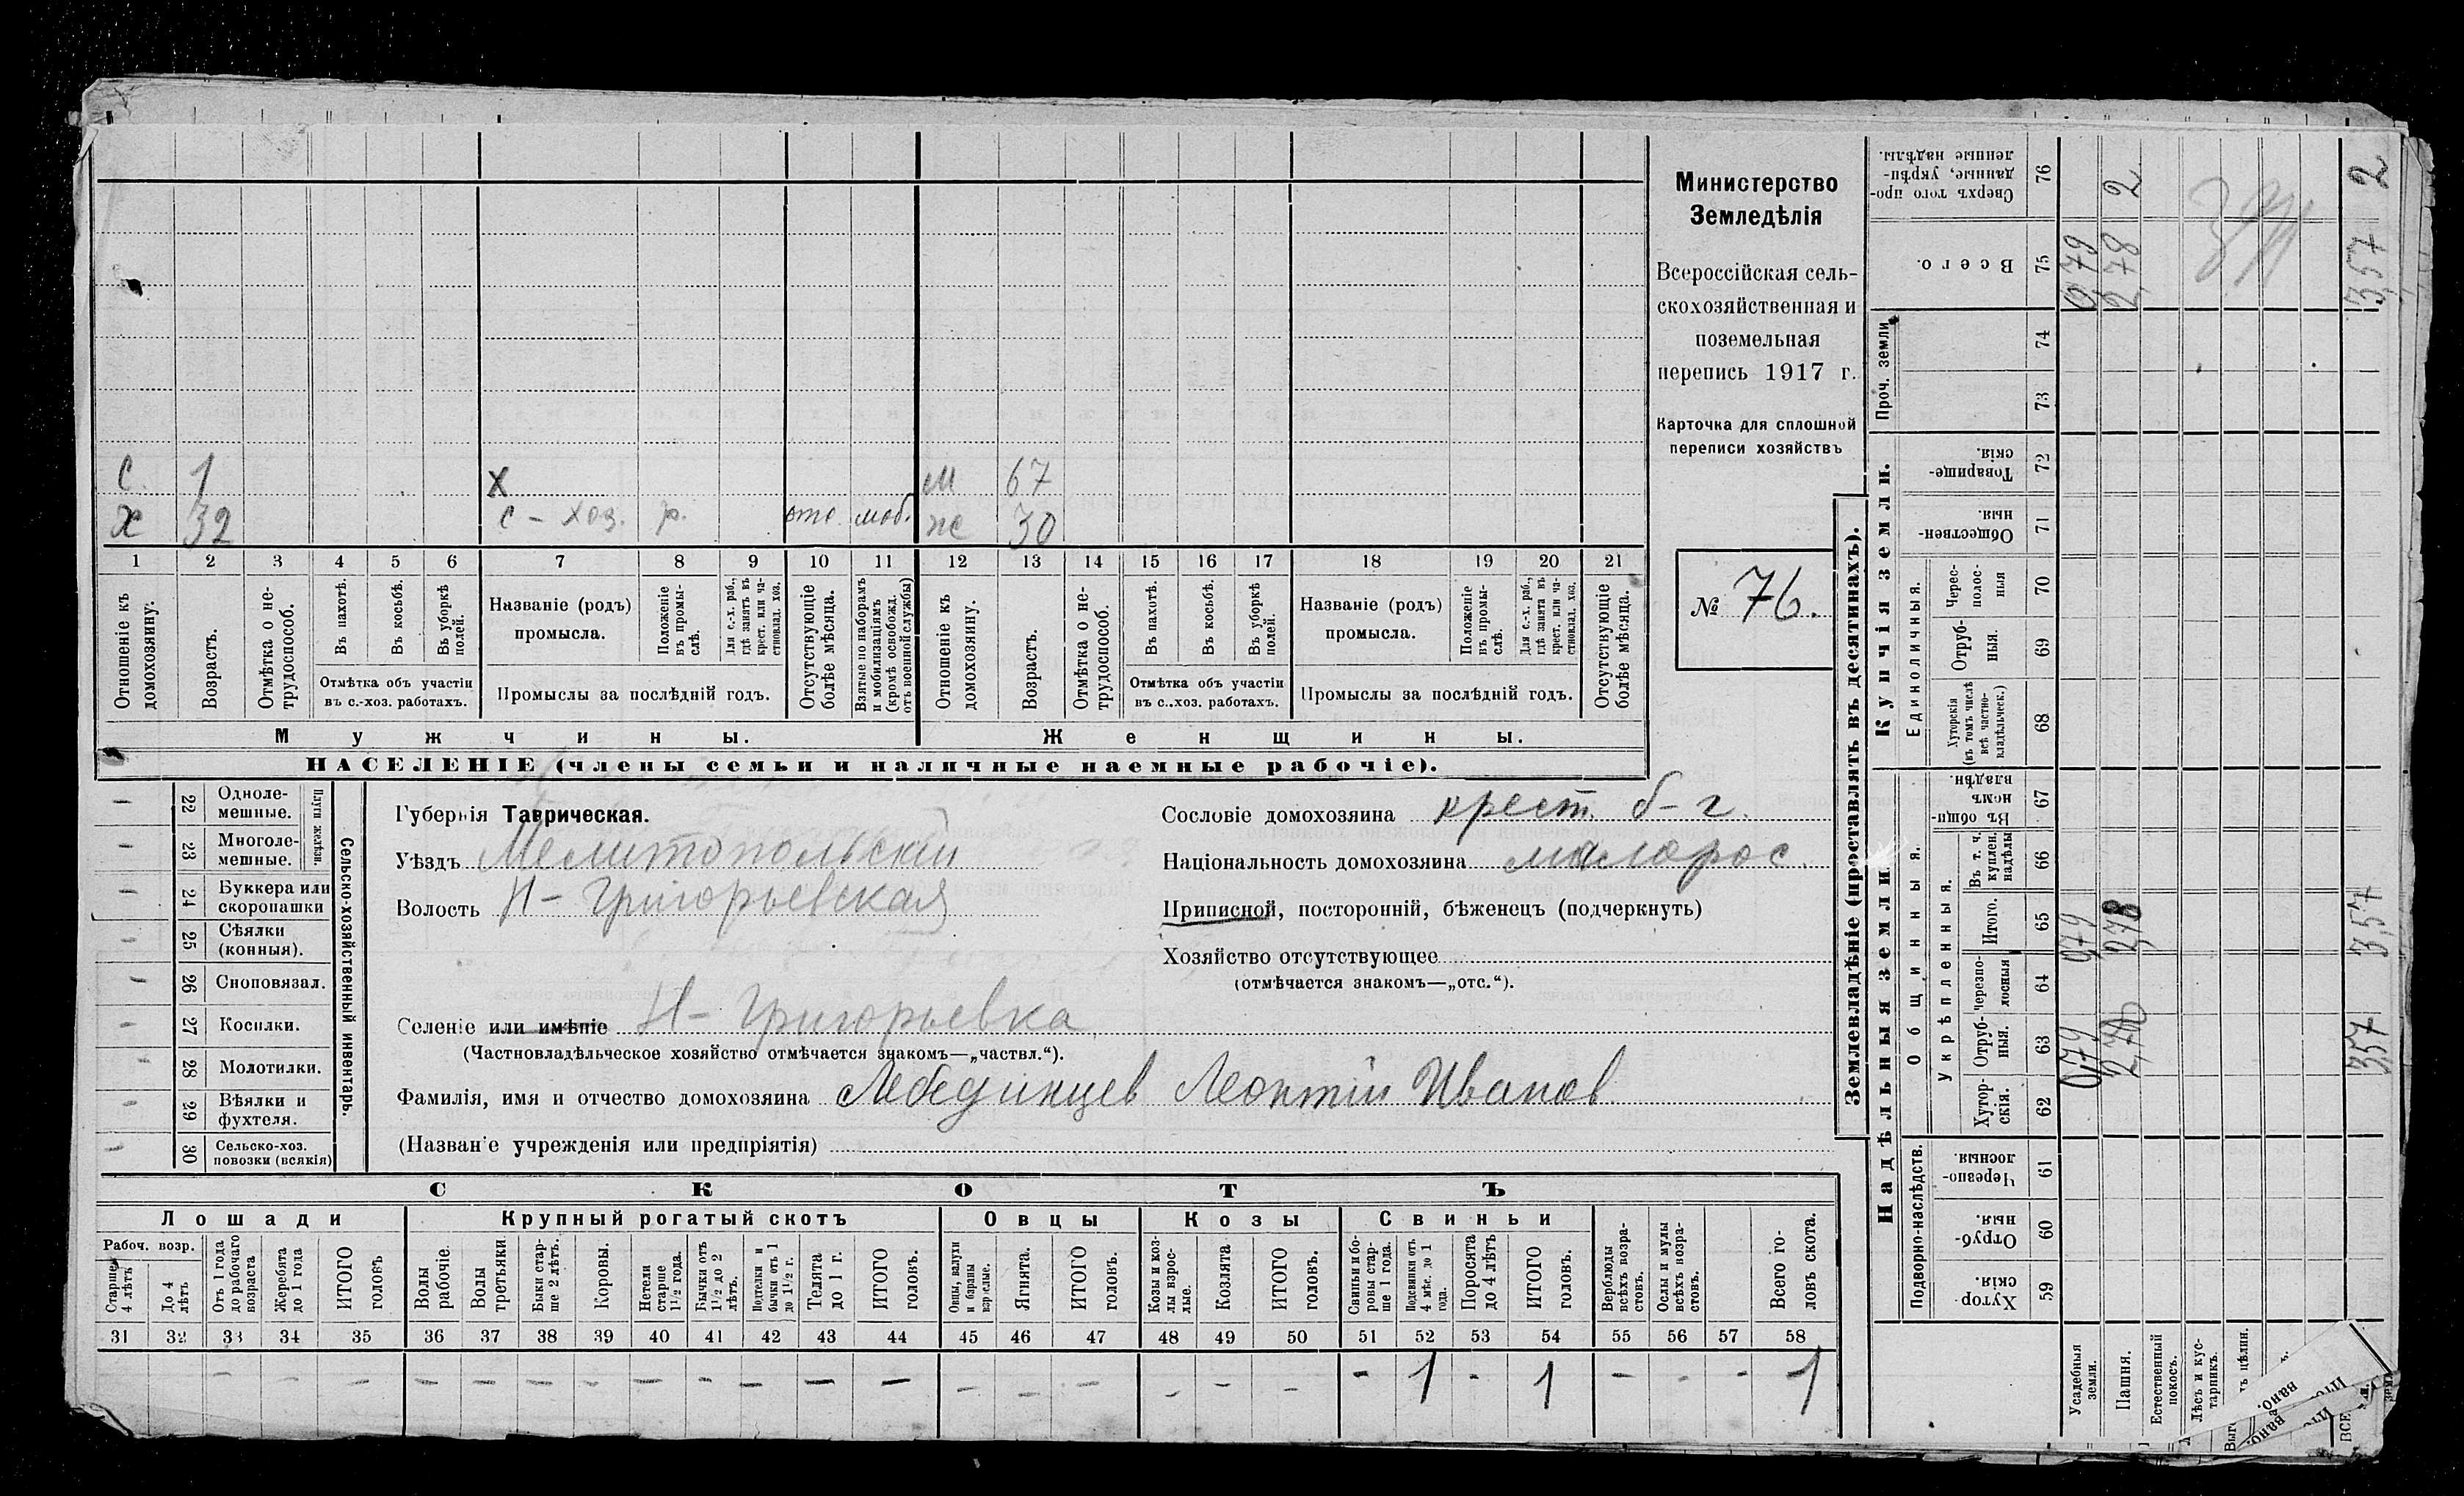 Министерство
Земледѣлія
Всероссійская сель-
скохозяйственная и
поземельная
перепись 1917 г.
Карточка для сплошной
переписи хозяйствъ
№ 76.
С. 1 х м 67
х 32 с-хоз. р. отс. моб. ж 30
1 2 3 4 5 6 7 8 9 10 11 12 13 14 15 16 17 18 19 20 21
Отношеніе къ домохозяину.
Возрастъ.
Отмѣтка о не-
трудоспособ.
Въ пахотѣ.
Въ косьбѣ.
Въ уборкѣ
полей.
Отмѣтка объ участіи
въ с.-хоз. работахъ.
Названіе (родъ)
промысла.
Положеніе
въ промы-
слѣ.
Для с.-х. раб.,
гдѣ занятъ въ
крест. или ча-
стновлад. хоз.
Промыслы за послѣдній годъ.
Отсутствующіе
болѣе мѣсяца.
Взятые по наборамъ
и мобилизаціямъ
(кромѣ освобожд.
отъ военной службы)
Отношеніе къ
домохозяину.
Возрастъ.
Отмѣтка о не-
трудоспособ.
Въ пахотѣ.
Въ косьбѣ.
Въ уборкѣ
полей.
Отмѣтка объ участіи
въ с..хоз. работахъ.
Названіе (родъ)
промысла.
Положеніе
въ промы-
слѣ.
Для с.-х. раб.,
гдѣ занята въ
крест. или ча-
стновлад. хоз.
Промыслы за послѣдній годъ.
Отсутствующіе
болѣе мѣсяца.
Мужчины.
Женщины.
НАСЕЛЕНІЕ (члены семьи и наличные наемные рабочіе).
Сельско-хозяйственный инвентарь.
Плуги желѣзн.
- 22 Одноле-
мешные.
- 23 Многоле-
мешные.
- 24 Буккера или
скоропашки
- 25 Сѣялки
(конныя).
- 26 Сноповязал.
- 27 Косилки.
- 28 Молотилки.
- 29 Вѣялки и
фухтеля.
- 30 Сельско-хоз.
повозки (всякія)
Губернія Таврическая.
Уѣздъ Мелитопольскій
Волость Н-Григорьевская
Сословіе домохозяина крест. б-г.
Національность домохозяина малорос.
Приписной, посторонній, бѣженецъ (подчеркнуть)
Хозяйство отсутствующее
(отмѣчается знакомъ—„отс.“).
Селеніе или имѣніе Н-Григорьевка
(Частновладѣльческое хозяйство отмѣчается знакомъ—„частвл.“).
Фамилія, имя и отчество домохозяина Лебединцев Леонтій Иванов
(Названіе учрежденія или предпріятія)
СКОТЪ
Лошади
Крупный рогатый скотъ
Овцы
Козы
Свиньи
Рабоч. возр.
Старше
4 лѣтъ
До 4
лѣтъ
Отъ 1 года
до рабочаго
возраста
Жеребята
до 1 года
ИТОГО
головъ
Волы
рабочіе.
Волы
третьяки
Быки стар-
ше 2 лѣтъ.
Коровы.
Нетели
старше
1½ года.
Бычки отъ
1½ до 2
лѣтъ.
Подтелки и
бычки отъ 1
до 1½ г.
Телята
до 1 г.
ИТОГО
головъ.
Овцы, валухи
и бараны
взрослые.
Ягнята.
ИТОГО
головъ.
Козы и коз-
лы взрос-
лые.
Козлята
ИТОГО
головъ.
Свиньи и бо-
ровы стар-
ше 1 года.
Подсвинки отъ
4 мѣс. до 1
года.
Поросята
до 4 лѣтъ
ИТОГО
головъ.
Верблюды
всѣхъ возра-
стовъ.
Ослы и мулы
всѣхъ возра-
стовъ.
Всего го-
ловъ скота.
31 32 33 34 35 36 37 38 39 40 41 42 43 44 45 46 47 48 49 50 51 52 53 54 55 56 57 58
- - - - - - - - - - - - - - - - - - - - 1 - 1 - - - 1
Землевладѣніе (проставлять въ десятинахъ).
Надѣльныя земли.
Купчія земли.
Проч. земли
Подворно-наслѣдств.
Общинныя.
Укрѣпленныя.
Единоличныя.
Хутор-
скія. 59
Отруб-
ныя. 60
Черезпо-
лосныя. 61
Хутор-
скія. 62
Отруб-
ныя. 63
Черезпо-
лосныя 64
Итого. 65
Въ т. ч.
куплен.
надѣлы 66
Въ общи-
номъ
владѣн. 67
Хуторскія
(въ томъ числѣ
всѣ частно-
владѣльческ.) 68
Отруб-
ныя. 69
Черес-
полос-
ныя 70
Обществен-
ныя. 71
Товарище-
скія. 72
73
74
Всего. 75
Сверхъ того про-
данные, укрѣп-
ленные надѣлы. 76
Усадебныя
земли. 0,79 0,79 0,79
Пашня. 2,78 2,78 2,78 2
Естественный
покосъ.
Лѣсъ и кус-
тарникъ.
Выг
ъ цѣлин.
вано.
ВСЕ 3,57 3,57 3,57 2